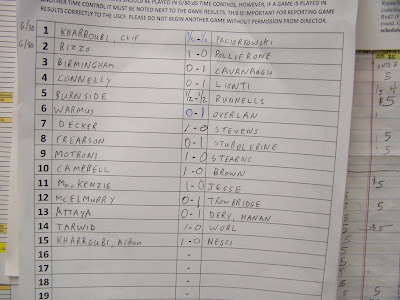 ANOTHER TIME CONTROL, IT MUST BE NOTED NEXT TO THE GAME RESULTS. THIS IS IMPORTANT FOR REPORTING GAME
RESULTS CORRECTLY TO THE USCF. PLEASE DO NOT BEGIN ANOTHER GAME WITHOUT PERMISSION FROM DIRECTOR.
G/30 1 KHARROUBI, CLIF ½-½ PACIORKOWSKI
G/30 2 RIZZO 1-0 POLLIFRONE
3 BIRMINGHAM 0-1 CAVANAUGH
4 CONNELLY 0-1 LIONTI
5 BURNSIDE ½-½ RUNNELLS
6 WARMUS 0-1 OVERLAN
7 DECKER 1-0 STEVENS
8 FREARSON 0-1 STUBBLEBINE
9 MOTRONI 1-0 STEARNS
10 CAMPBELL 1-0 BROWN
11 MacKENZIE 1-0 JESSE
12 McELMURRY 0-1 TROWBRIDGE
13 ATTAYA 0-1 DERY, HANAN
14 TARWID 1-0 WORL
15 KHARROUBI, Aidan 1-0 NESCI
16 -
17 -
18 -
19 -